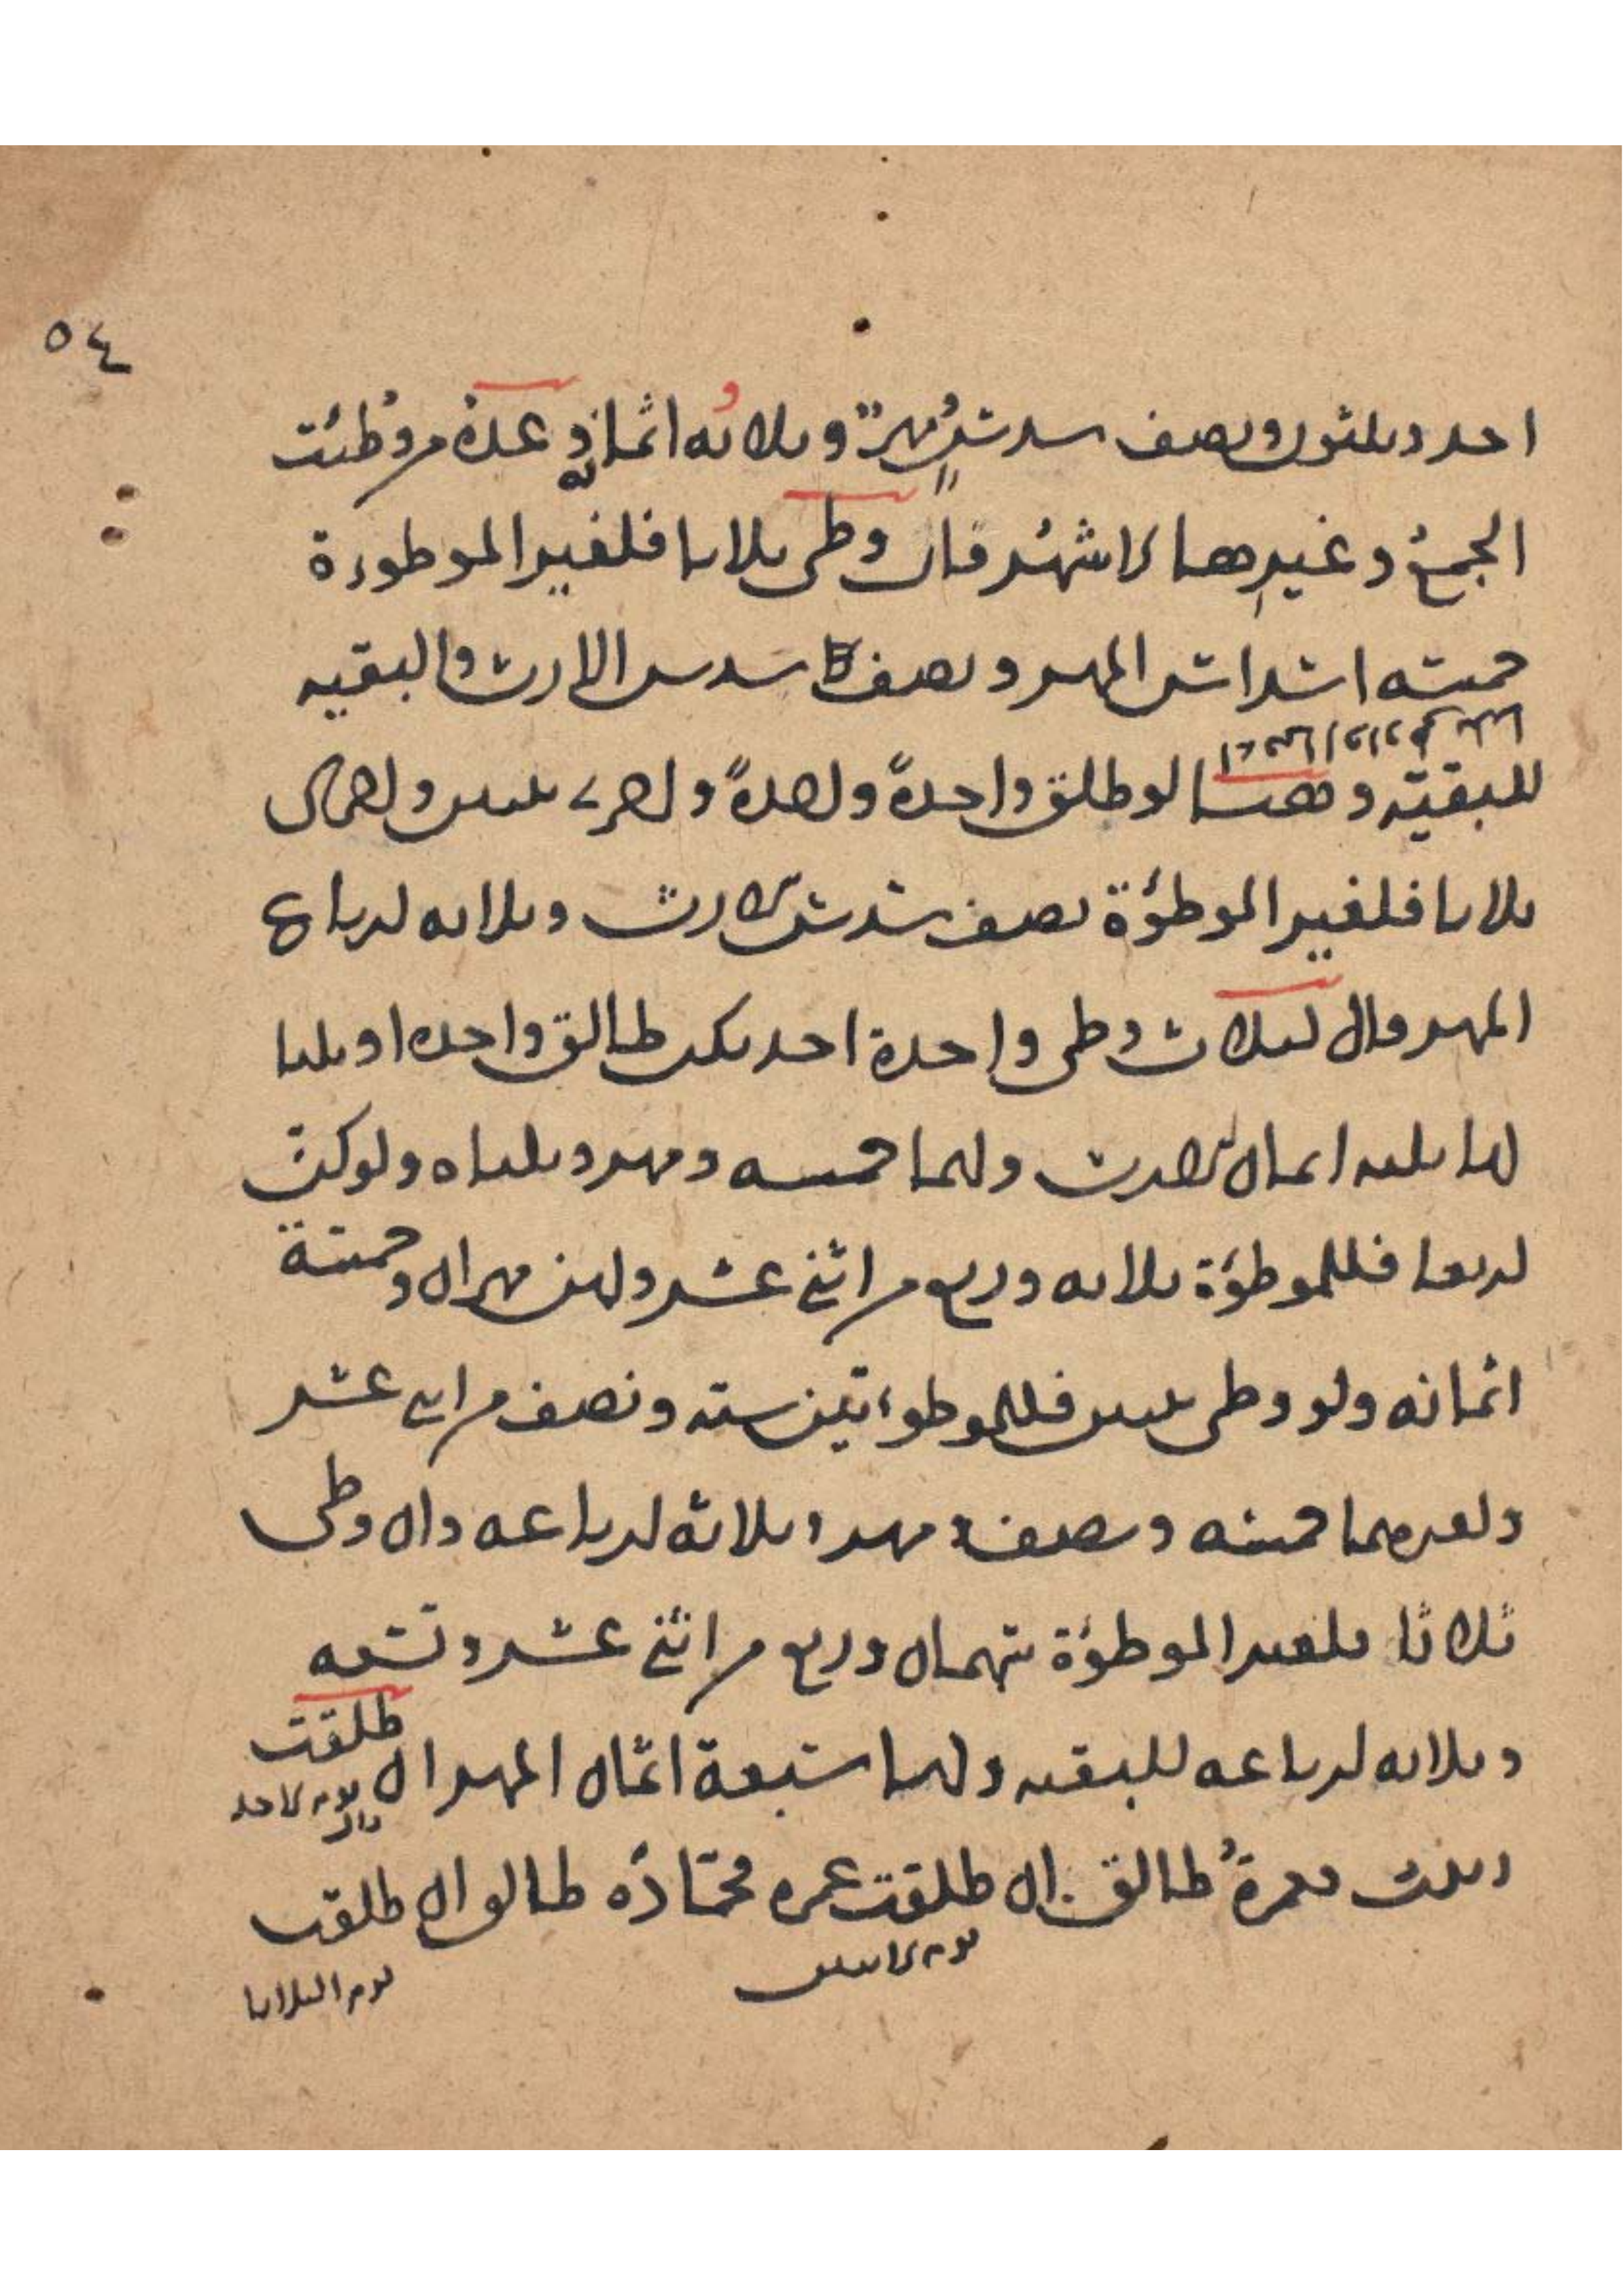 ٥٤
احد وثلثون ونصف سدس مهر وثلاثه اثمانه عدة من وطئت
الجمع وغيرها الاشهر فان وطى ثلاثا فلغير الموطورة
خمسه اسداس المهر ونصف سدس الارث والبقيه
للبقيه وهنا لو طلق واحدة واحدة واخرى ثنتين واخرى
ثلاثا فلغير الموطؤة نصف سدس الارث وثلاثه ارباع
المهر قال لثلاث وطى واحدة احديكن طالق واحده او ثلثا
لها ثلثه اثمان الارث ولهما خمسه ومهر وثلثاه ولو كن
اربعا فللموطؤة ثلاثه وربع من اثني عشر ولهن مهران وخمسة
اثمانه ولو وطى ثنتين فللموطوءتين سته ونصف من اثنى عشر
ولغيرهما خمسه ونصف ومهر وثلاثه ارباعه وان وطى
ثلاثا فلغير الموطؤة سهمان وربع من اثني عشر وتسعه
وثلاثه ارباعه للبقيه ولها سبعة اثمان المهر ان طلقت
يوم الاحد
زينب فعمرة طالق ان طلقت عمره فحمادة طالق ان طلقت
يوم الاثنين
يوم الثلاثا